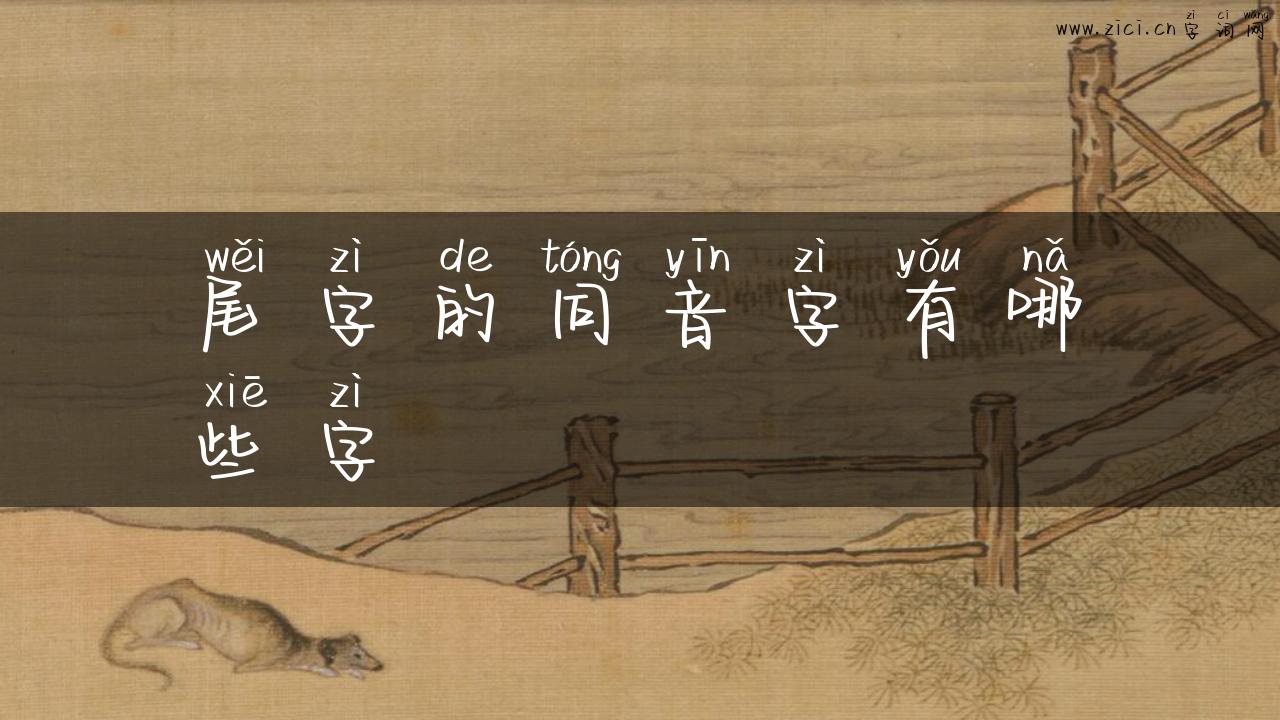 zì cí wǎng
www.zici.cn 字词网
wěi zì de tóng yīn zì yǒu nǎ
尾字的同音字有哪
xiē zì
些字